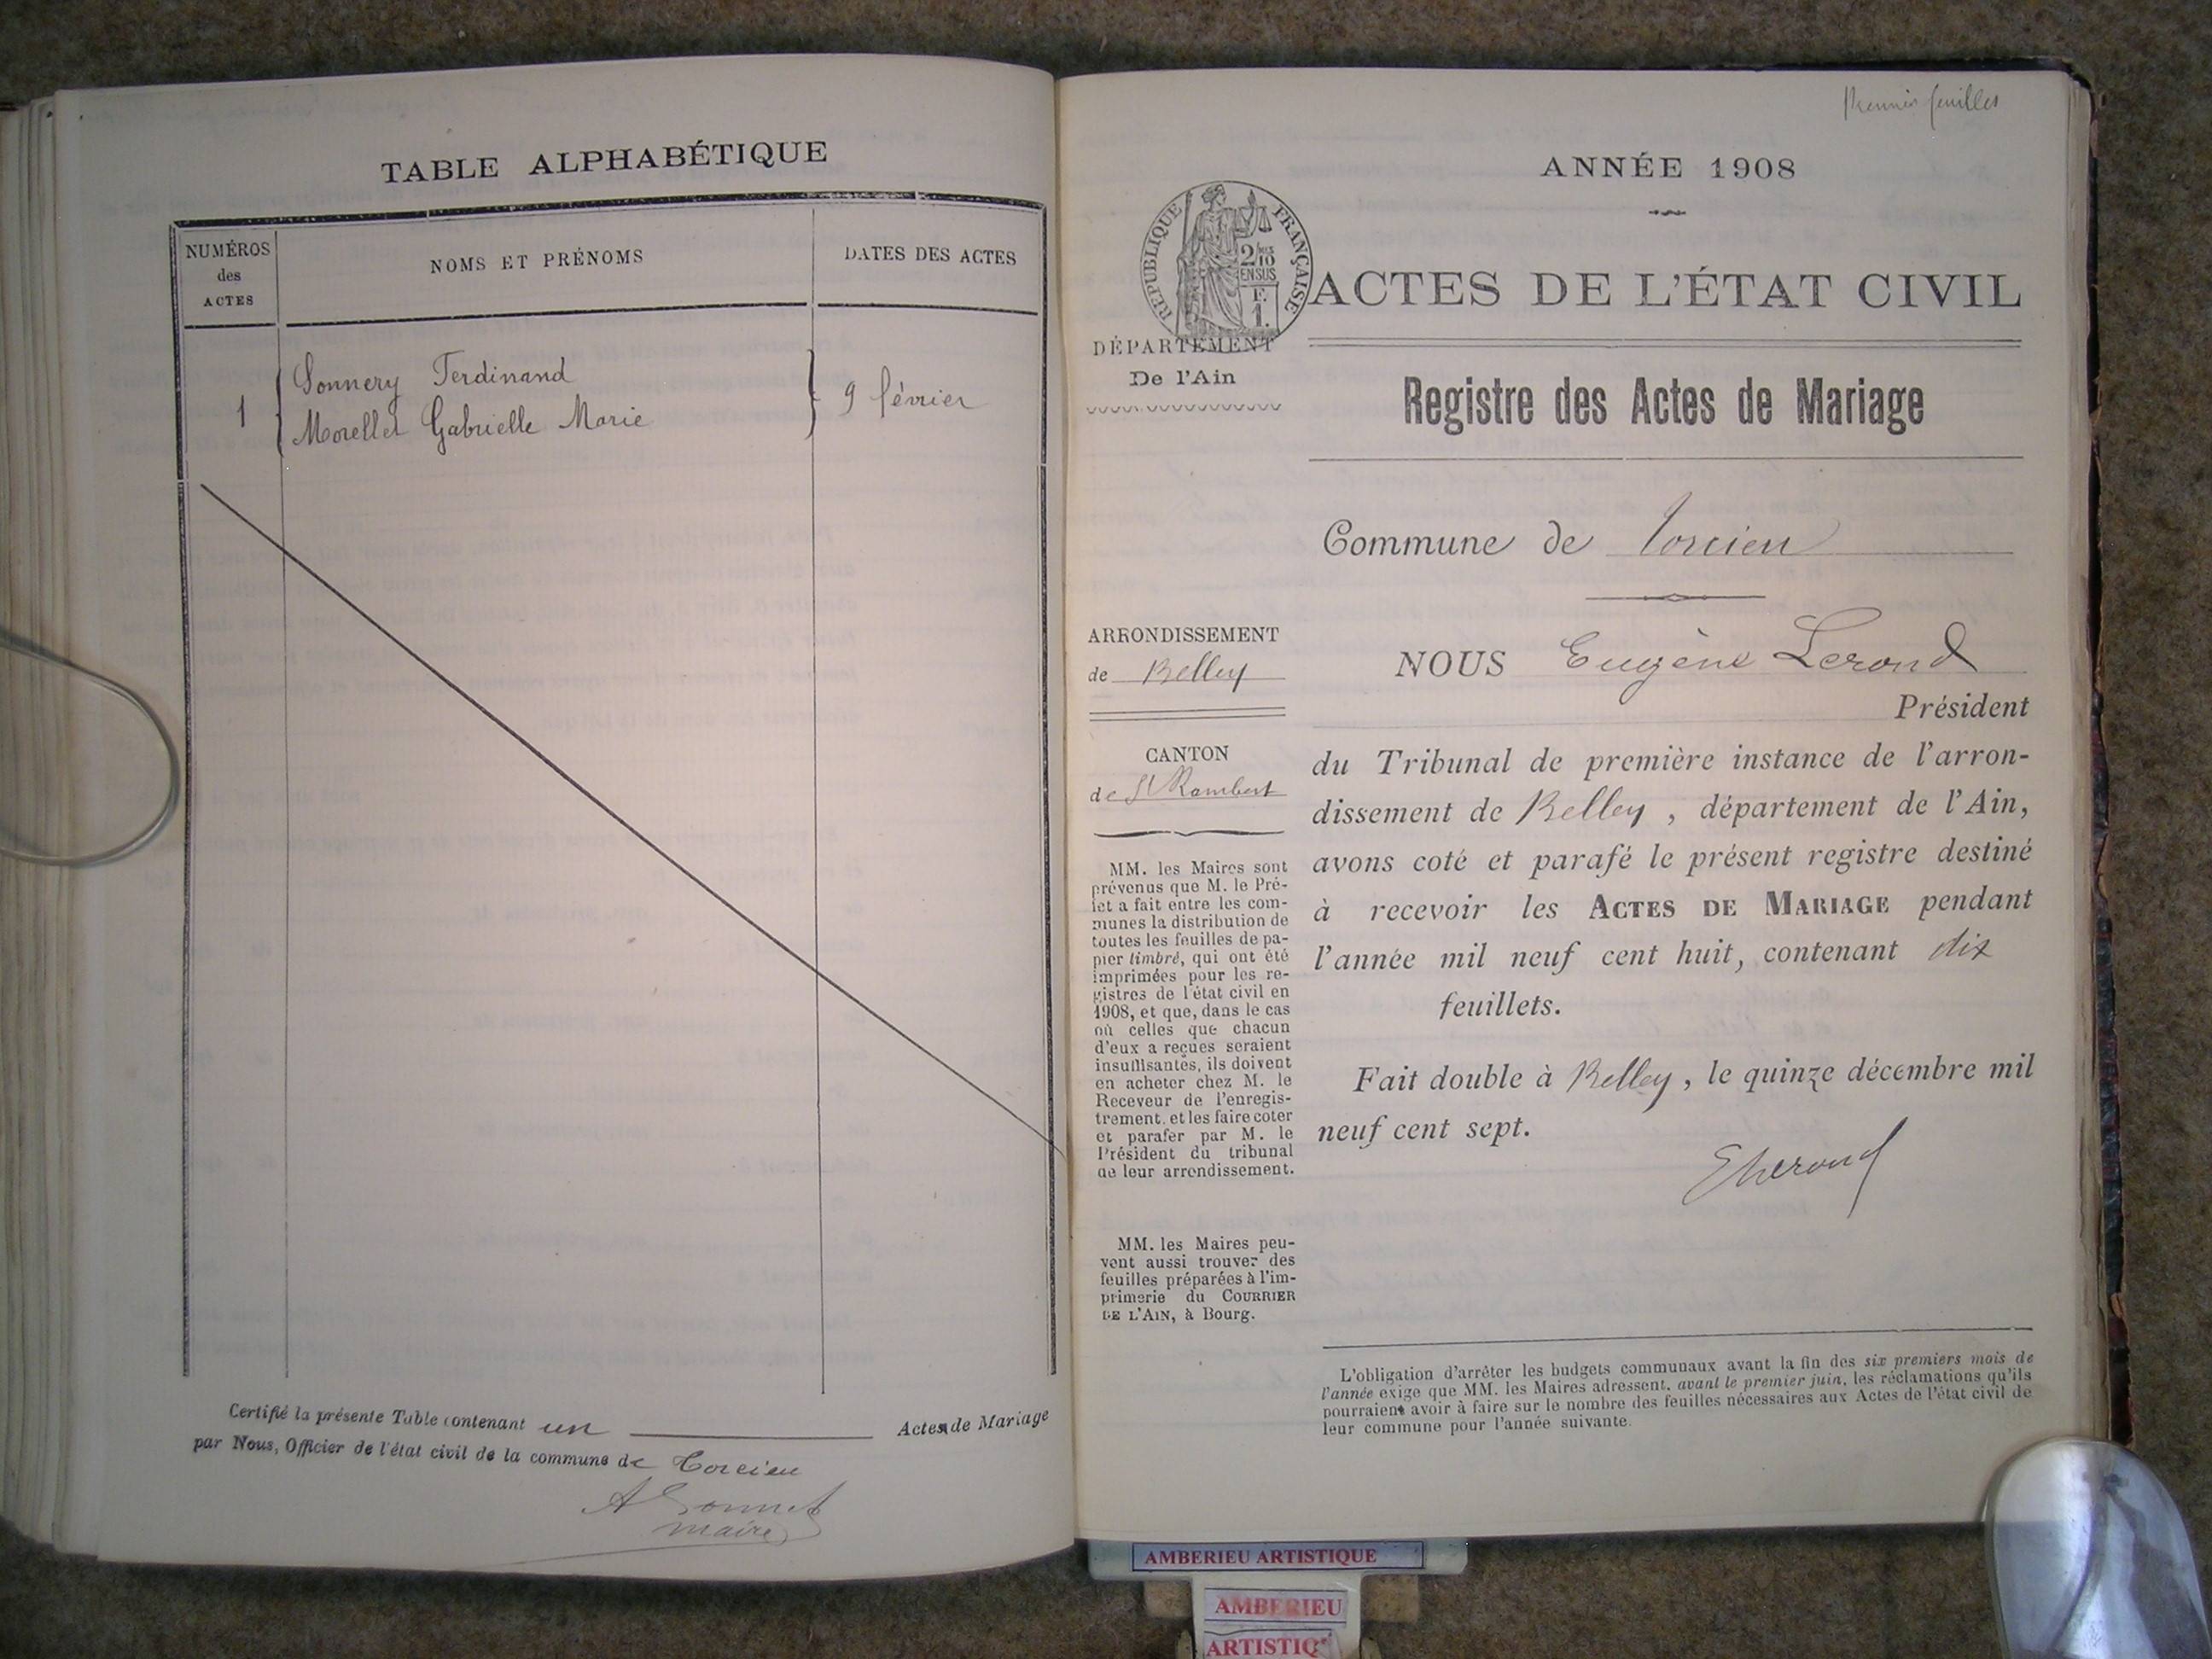 TABLE ALPHABÉTIQUE
NUMÉROS
des
ACTES
NOMS ET PRÉNOMS
DATES DES ACTES
1
Sonnery Ferdinand
Morellet Gabrielle Marie
9 février
Certifié la présente Table contenant un Actes de Mariage
par Nous, Officier de l'état civil de la commune de Torcieu
A Bonnet
maire
Premier feuilles
ANNÉE 1908
RÉPUBLIQUE FRANÇAISE
2/10
EN SUS
F.
1.
ACTES DE L'ÉTAT CIVIL
DÉPARTEMENT
De l'Ain
Registre des Actes de Mariage
Commune de Torcieu
ARRONDISSEMENT
de Belley
CANTON
de St Rambert
MM. les Maires sont
prévenus que M. le Pré-
fet a fait entre les com-
munes la distribution de
toutes les feuilles de pa-
pier timbré, qui ont été
imprimées pour les re-
gistres de l'état civil en
1908, et que, dans le cas
où celles que chacun
d'eux a reçues seraient
insuffisantes, ils doivent
en acheter chez M. le
Receveur de l'enregis-
trement, et les faire coter
et parafer par M. le
Président du tribunal
de leur arrondissement.
MM. les Maires peu-
vent aussi trouver des
feuilles préparées à l'im-
primerie du COURRIER
DE L'AIN, à Bourg.
NOUS Eugène Lerond
Président
du Tribunal de première instance de l'arron-
dissement de Belley, département de l'Ain,
avons coté et parafé le présent registre destiné
à recevoir les ACTES DE MARIAGE pendant
l'année mil neuf cent huit, contenant dix
feuillets.
Fait double à Belley, le quinze décembre mil
neuf cent sept.
E Lerond
L'obligation d'arrêter les budgets communaux avant la fin des six premiers mois de
l'année exige que MM. les Maires adressent, avant le premier juin, les réclamations qu'ils
pourraient avoir à faire sur le nombre des feuilles nécessaires aux Actes de l'état civil de
leur commune pour l'année suivante.
AMBERIEU ARTISTIQUE
AMBERIEU
ARTISTIQ